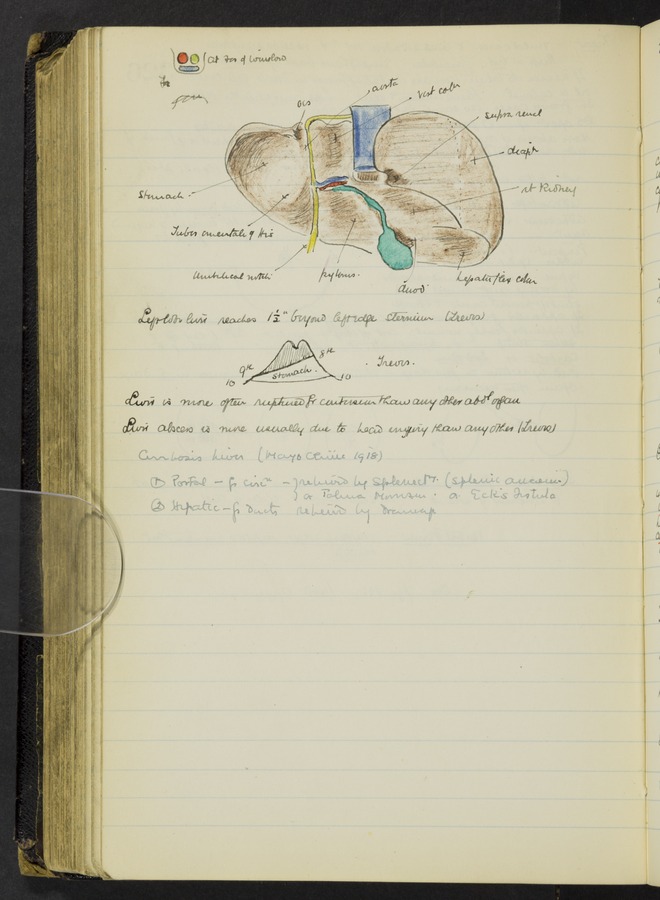 at For of Winslow
oes
aorta
vert colm
supra renal
diaph
rt Kidney
Stomach
Tuber omentale of His
Umbilical notch
pylorus.
duod
hepatic flex colon
Left lobe liver reaches 1½" beyond left edge sternum (Treves)
9th
8th
stomach
10
10
Treves.
Liver is more often ruptured fr contusion than any other abdl organ
Liver abscess is more usually due to head injury than any other (Treves)
Cirrhosis Liver (Mayo Clinic 1918)
① Portal – fr circn – relieved by Splenecty. (splenic anaemia)
or Talma Morrison. or Eck's Fistula
② Hepatic – fr Ducts relieved by Drainage